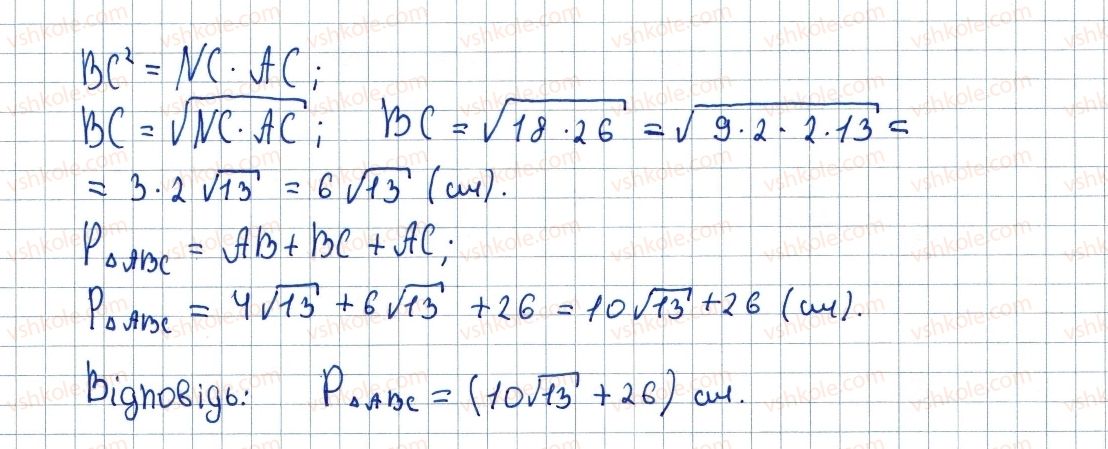 BC² = NC · AC;
BC = √(NC · AC); BC = √(18 · 26) = √(9 · 2 · 2 · 13) =
= 3 · 2√13 = 6√13 (см).
P△ABC = AB + BC + AC;
P△ABC = 4√13 + 6√13 + 26 = 10√13 + 26 (см).
Відповідь: P△ABC = (10√13 + 26) см.